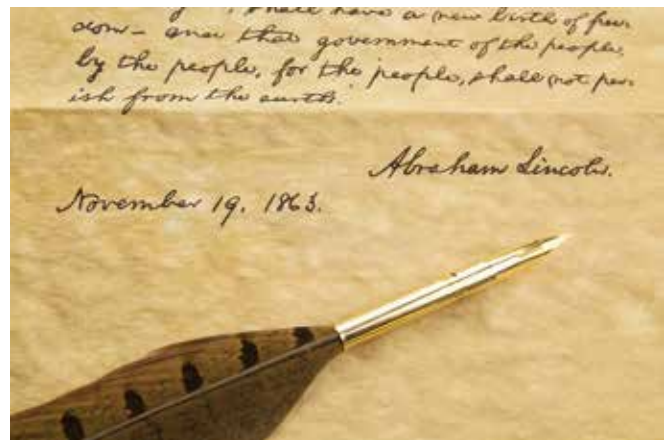 shall have a new birth of free
dom — and that government of the people,
by the people, for the people, shall not per-
ish from the earth.
Abraham Lincoln.
November 19, 1863.